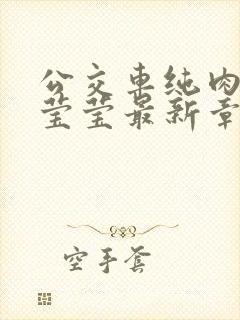 公交车纯肉
莹莹最新章
空手套